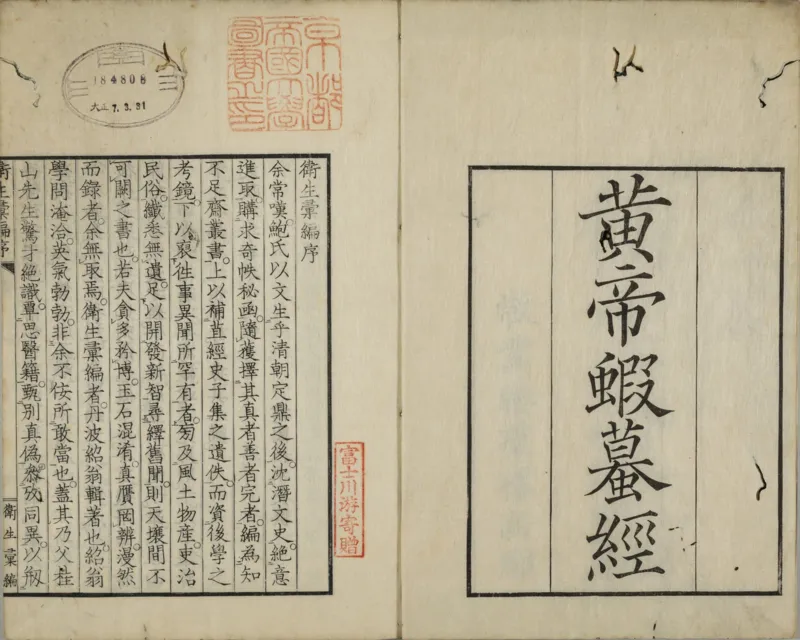 黄帝蝦蟇經
京都
帝國大學
圖書之印
184808
大正7.3.31
衛生彙編序
余常嘆鮑氏以文生乎清朝定鼎之後沈潛文史絕意
進取購求奇帙秘函隨獲擇其真者善者完者編為知
不足齋叢書上以補苴經史子集之遺佚而資後學之
考鏡下以裒往事異聞所罕有者旁及風土物産吏治
民俗纖悉無遺足以開發新智尋繹舊聞則天壤間不
可闕之書也若夫貪多矜博玉石混淆真贋罔辨漫然
而錄者余無取焉衛生彙編者丹波紹翁輯著也紹翁
學問淹洽英氣勃勃非余不佞所敢當也蓋其乃父桂
山先生驚才絕識覃思醫籍甄別真偽參攷同異以剏
衛生彙編序
衛生彙編
富士川游寄贈